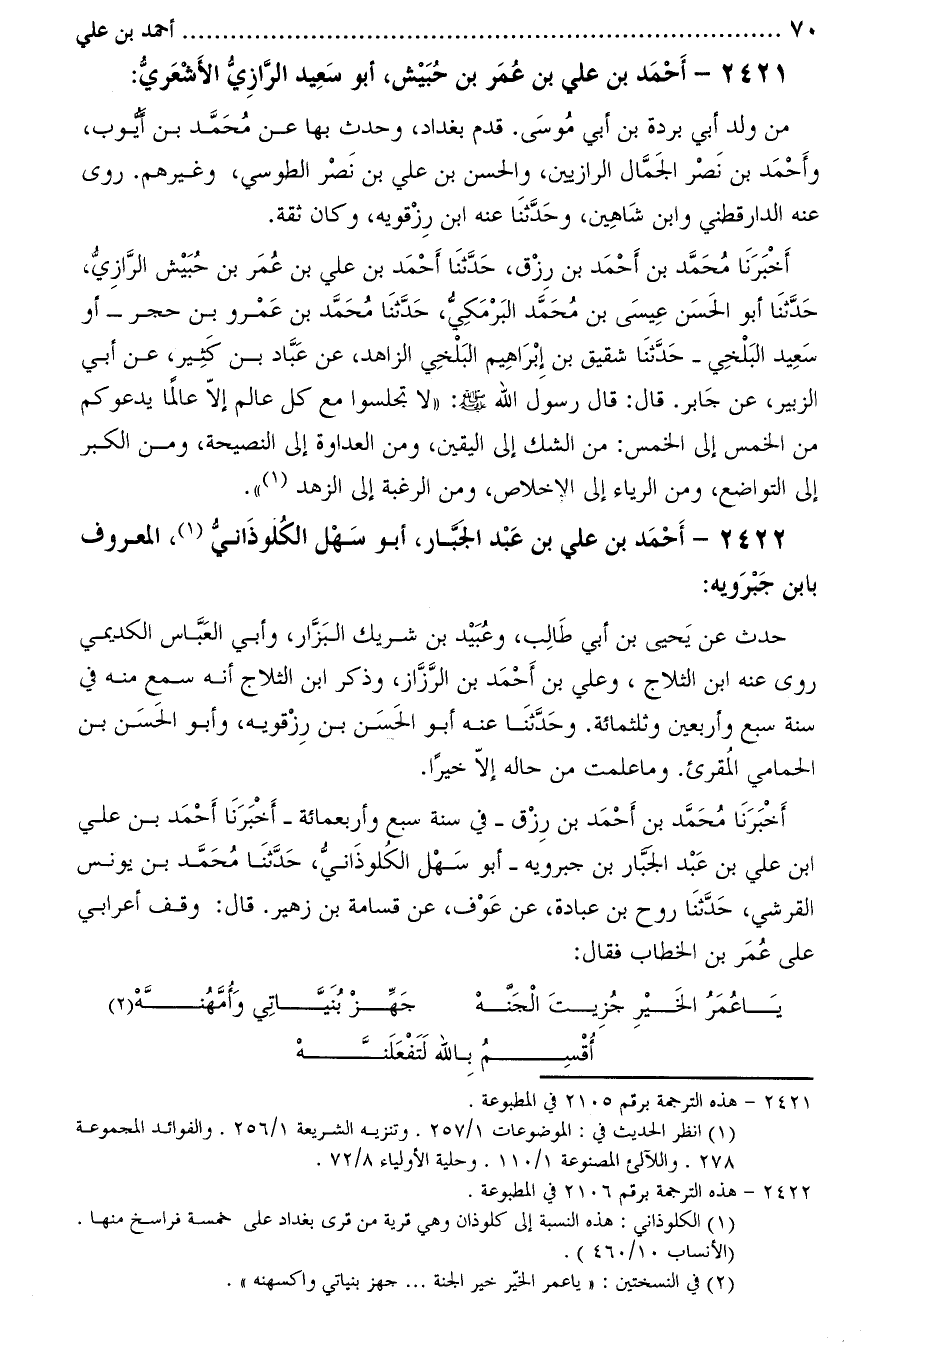 ٧٠ ........................................................................ أحمد بن علي
٢٤٢١ – أَحْمَد بن علي بن عُمَر بن حُبَيْش، أبو سَعِيد الرَّازِيُّ الأَشْعَرِيُّ:
من ولد أبي بردة بن أبي مُوسَى. قدم بغداد، وحدث بها عن مُحَمَّد بن أَيُّوب،
وأَحْمَد بن نَصْر الجَمَّال الرازيين، والحسن بن علي بن نَصْر الطوسي، وغيرهم. روى
عنه الدارقطني وابن شَاهِين، وحَدَّثَنَا عنه ابن رِزْقويه، وكان ثقة.
أَخْبَرَنَا مُحَمَّد بن أَحْمَد بن رِزْق، حَدَّثَنَا أَحْمَد بن علي بن عُمَر بن حُبَيْش الرازيُّ،
حَدَّثَنَا أبو الحَسَن عِيسَى بن مُحَمَّد البَرْمَكِيُّ، حَدَّثَنَا مُحَمَّد بن عَمْرو بن حجر – أو
سَعِيد البَلْخِي – حَدَّثَنَا شقيق بن إِبْرَاهِيم البَلْخِي الزاهد، عن عَبَّاد بن كَثِير، عن أبي
الزبير، عن جَابر. قال: قال رسول الله ﷺ: «لا تجلسوا مع كل عالم إلاّ عالمًا يدعوكم
من الخمس إلى الخمس: من الشك إلى اليقين، ومن العداوة إلى النصيحة، ومن الكبر
إلى التواضع، ومن الرياء إلى الإخلاص، ومن الرغبة إلى الزهد (١)».
٢٤٢٢ – أَحْمَد بن علي بن عَبْد الجَبَّار، أبو سَهْل الكُلوذَانيُّ (١)، المعروف
بابن جَبْرَويه:
حدث عن يَحيى بن أبي طَالِب، وعُبَيْد بن شريك البَزَّار، وأبي العَبَّاس الكديمي
روى عنه ابن الثلاج ، وعلي بن أَحْمَد بن الرَّزَّاز، وذكر ابن الثلاج أنه سمع منه في
سنة سبع وأربعين وثلثمائة. وحَدَّثَنَا عنه أبو الحَسَن بن رِزْقويه، وأبو الحَسَن بن
الحمامي المُقرئ. وماعلمت من حاله إلاّ خيرًا.
أَخْبَرَنَا مُحَمَّد بن أَحْمَد بن رِزْق – في سنة سبع وأربعمائة – أَخْبَرَنَا أَحْمَد بن علي
ابن علي بن عَبْد الجَبَّار بن جبرويه – أبو سَهْل الكُلوذَانيُّ، حَدَّثَنَا مُحَمَّد بن يونس
القرشي، حَدَّثَنَا روح بن عبادة، عن عَوْف، عن قسامة بن زهير. قال: وقف أعرابي
على عُمَر بن الخطاب فقال:
يَاعُمَرُ الخَيْرِ جُزِيتَ الْجَنَّهْ جَهِّزْ بُنَيَّاتِي وَأُمَّهُنَّهْ(٢)
أُقْسِمُ بِالله لَتَفْعَلَنَّهْ
٢٤٢١ – هذه الترجمة برقم ٢١٠٥ في المطبوعة .
(١) انظر الحديث في : الموضوعات ٢٥٧/١ . وتنزيه الشريعة ٢٥٦/١ . والفوائد المجموعة
٢٧٨ . واللآلئ المصنوعة ١١٠/١ . وحلية الأولياء ٧٢/٨ .
٢٤٢٢ – هذه الترجمة برقم ٢١٠٦ في المطبوعة .
(١) الكلوذاني : هذه النسبة إلى كلوذان وهي قرية من قرى بغداد على خمسة فراسخ منها .
(الأنساب ٤٦٠/١٠ ) .
(٢) في النسختين : « ياعمر الخيّر خير الجنة ... جهز بنياتي واكسهنه » .